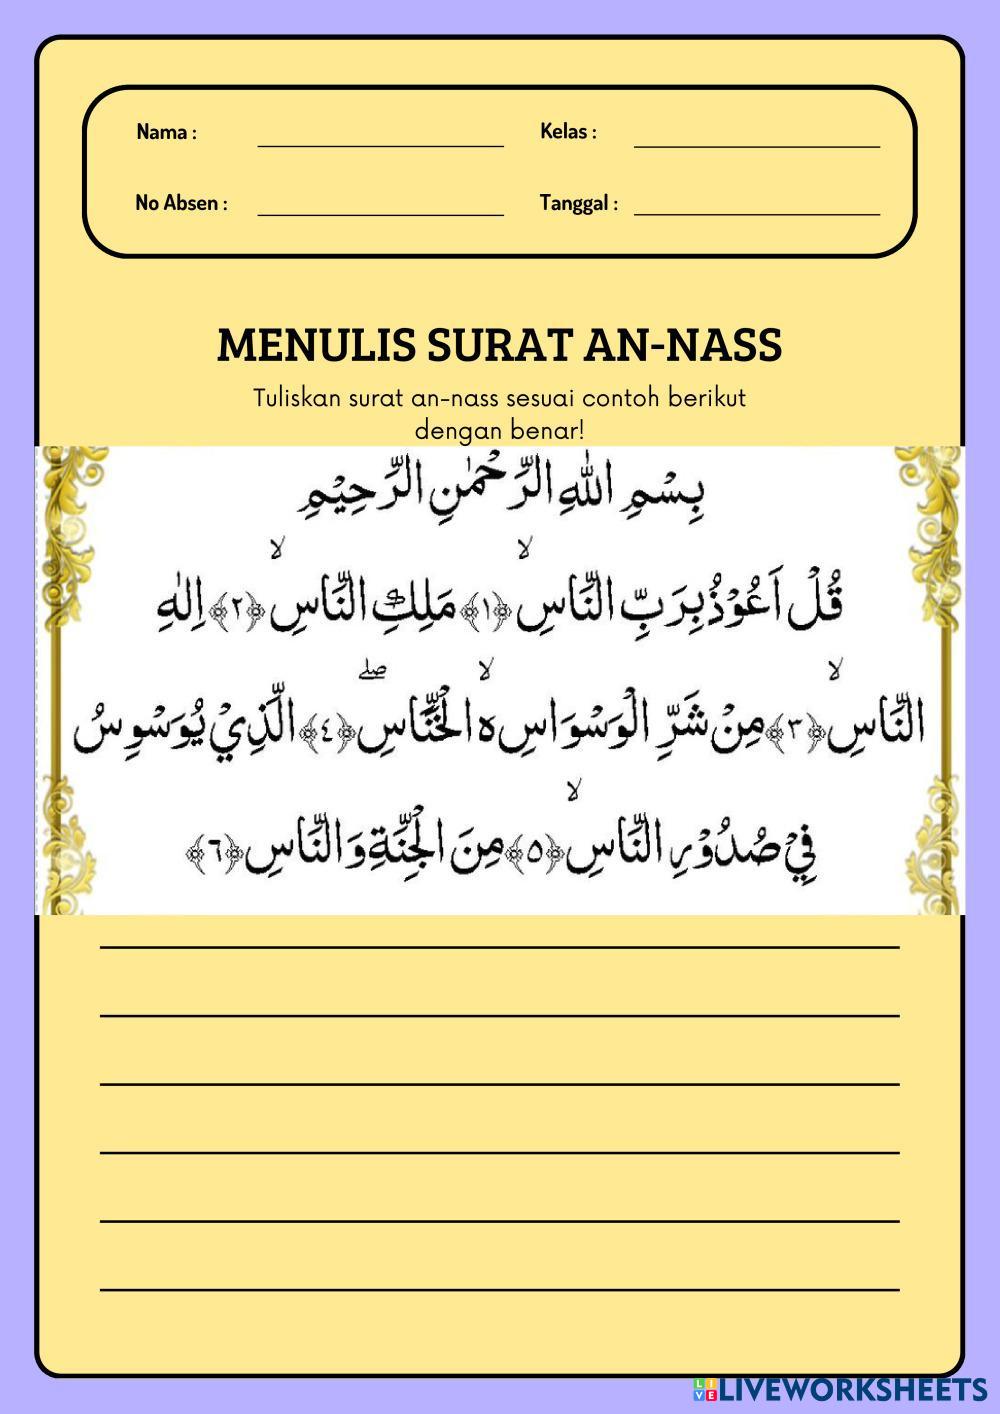 Nama :
Kelas :
No Absen :
Tanggal :
MENULIS SURAT AN-NASS
Tuliskan surat an-nass sesuai contoh berikut
dengan benar!
بِسْمِ اللهِ الرَّحْمٰنِ الرَّحِيْمِ
قُلْ اَعُوْذُ بِرَبِّ النَّاسِۙ ﴿١﴾ مَلِكِ النَّاسِۙ ﴿٢﴾ اِلٰهِ
النَّاسِۙ ﴿٣﴾ مِنْ شَرِّ الْوَسْوَاسِ ەۙ الْخَنَّاسِۖ ﴿٤﴾ الَّذِيْ يُوَسْوِسُ
فِيْ صُدُوْرِ النَّاسِۙ ﴿٥﴾ مِنَ الْجِنَّةِ وَالنَّاسِ ﴿٦﴾
LIVE LIVEWORKSHEETS